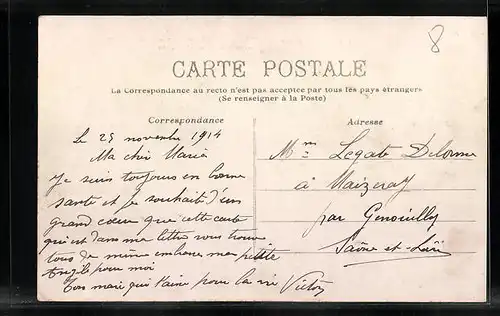 8
CARTE POSTALE
La Correspondance au recto n'est pas acceptée par tous les pays étrangers
(Se renseigner à la Poste)
Correspondance
Le 25 novembre 1914
Ma chèr Maria
Je suis toujours en bonne
sante et je souhaite d'un
grand cœur que cette carte
qui est dans ma lettre vous trouve
tous de même embrasse ma petite
pour moi
Ton mari qui t'aime pour la vie Victor
Adresse
Mme Legate Delorme
à Maizeray
par Genouilly
Saône-et-Loire